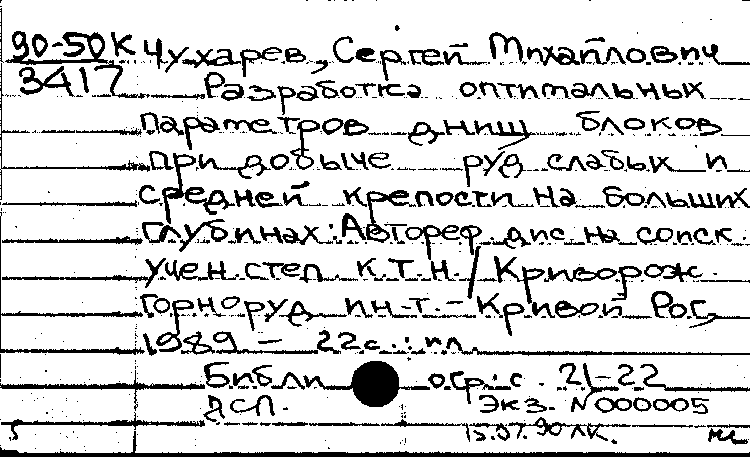 90-50К Чухарев, Сергей Михайлович
3417 Разработка оптимальных
параметров днищ блоков
при добыче руд слабых и
средней крепости на больших
глубинах: Автореф. дис. на соиск.
учен. степ. к.т.н. / Криворож.
горноруд. ин-т. - Кривой Рог,
1989 - 22с.: ил.
Библиогр.: с. 21-22
ДСП. Экз. N 000005
15.07.90 ЛК.